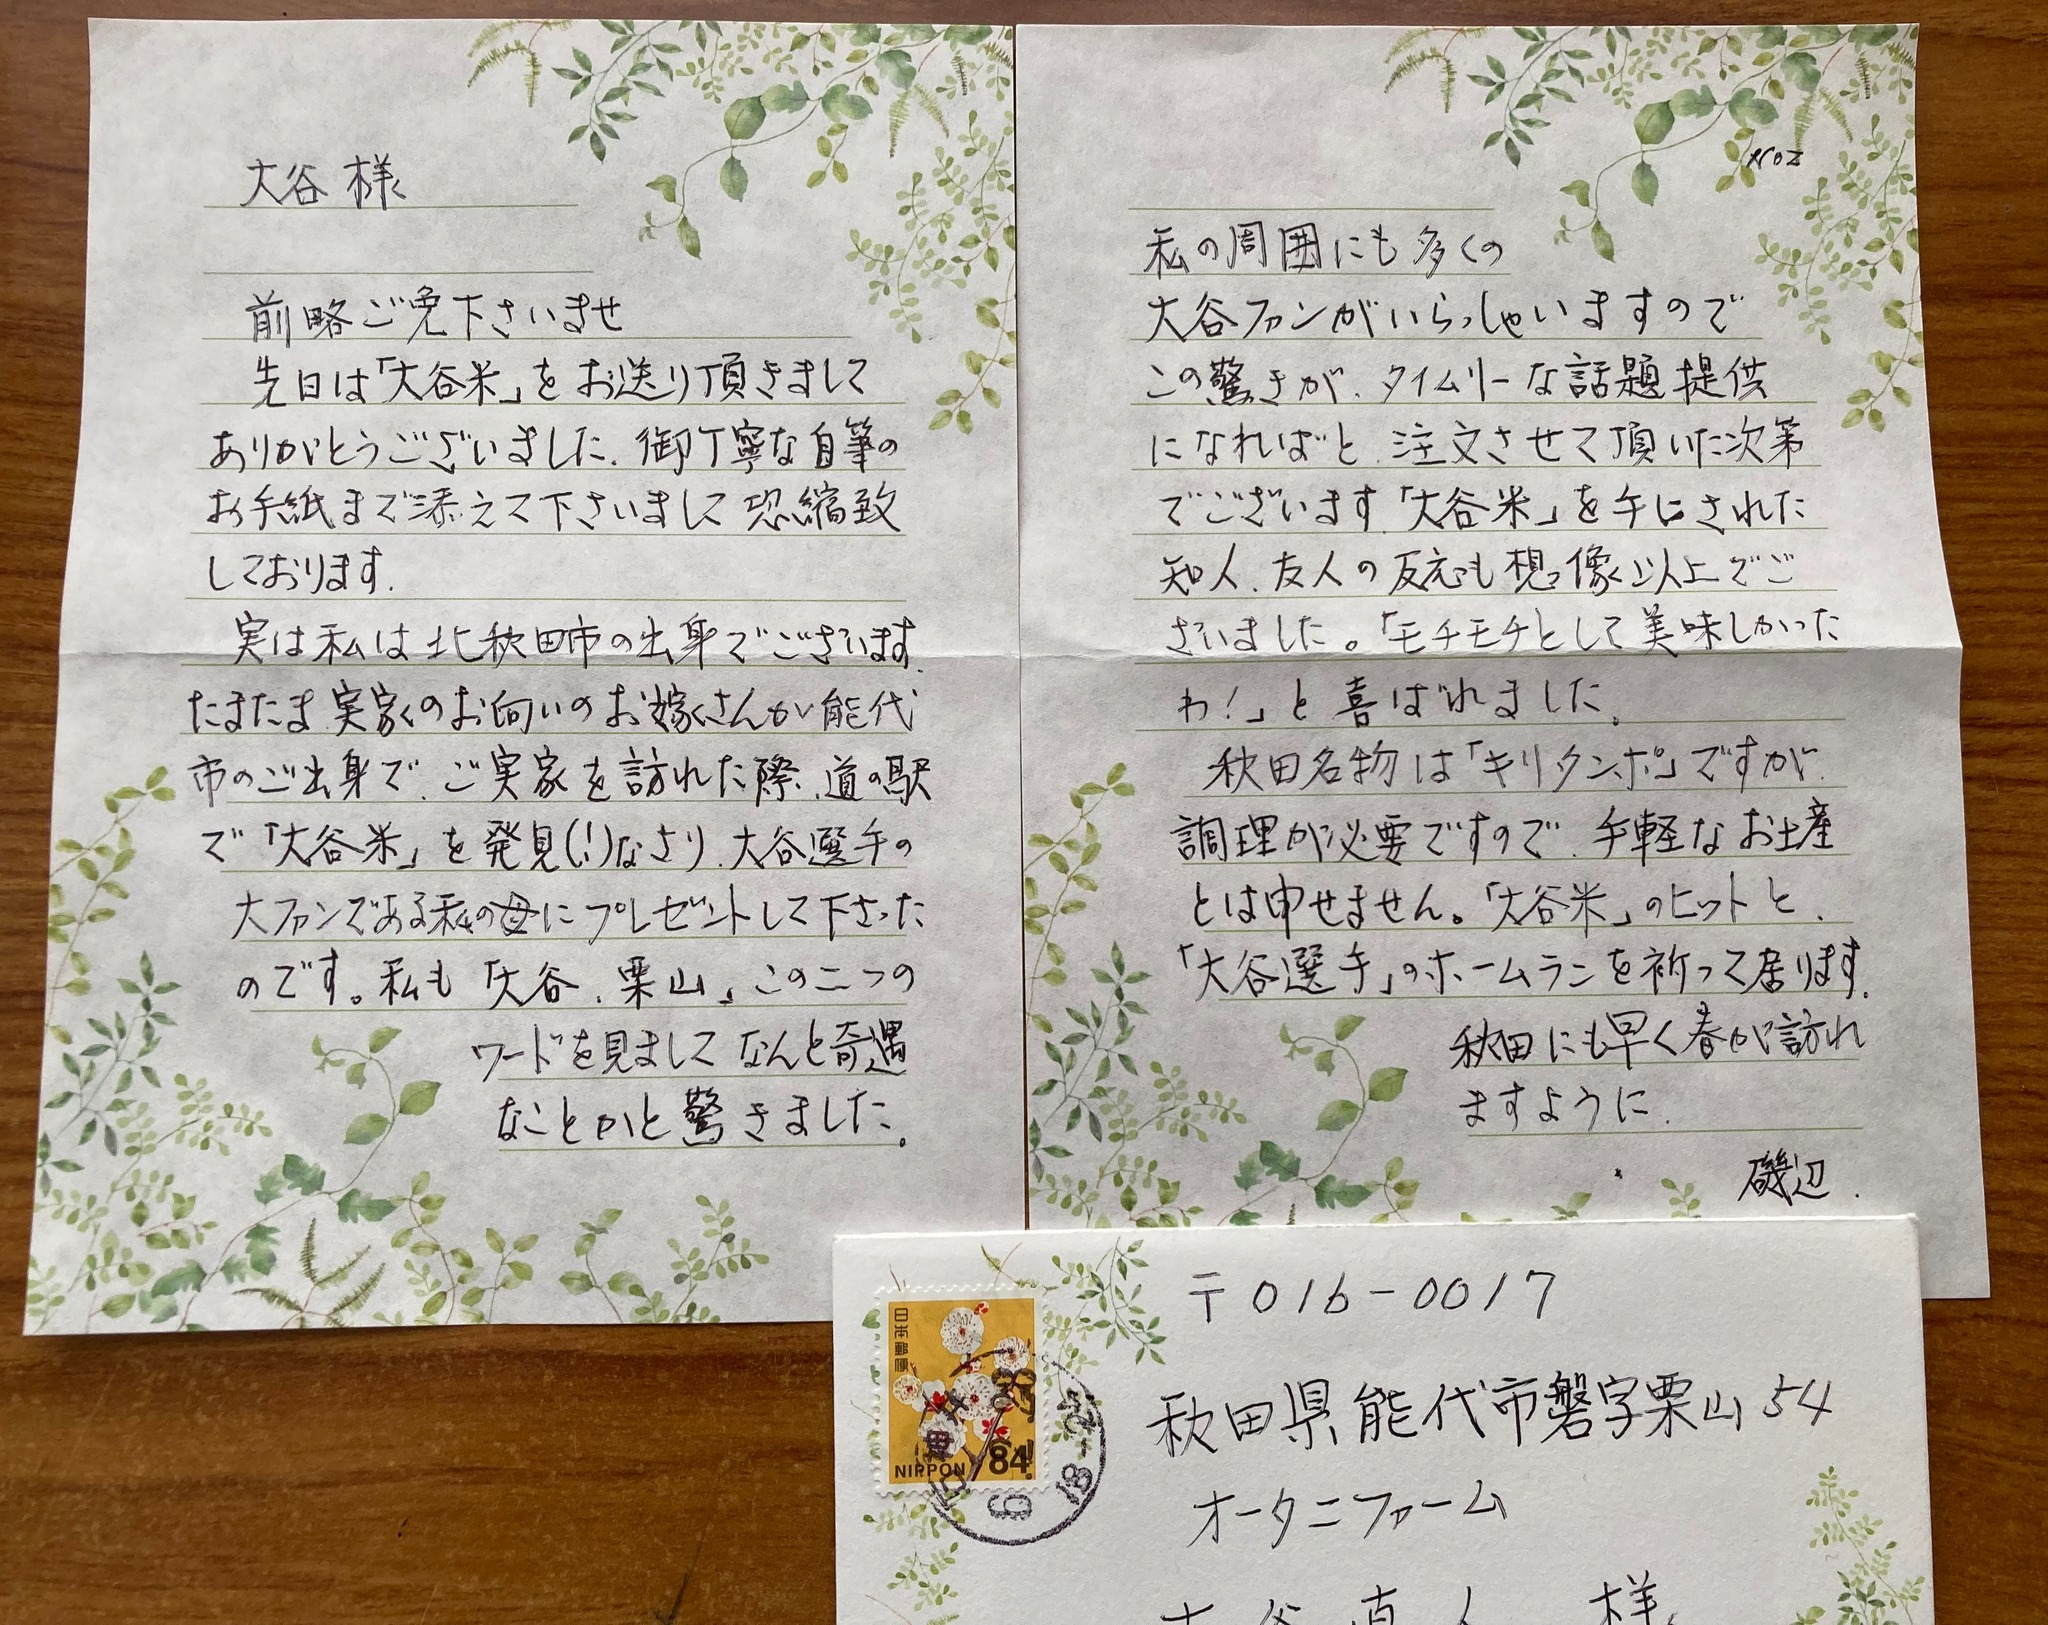 大谷 様
前略ご免下さいませ
先日は「大谷米」をお送り頂きまして
ありがとうございました.御丁寧な自筆の
お手紙まで添えて下さいまして恐縮致
しております.
実は私は北秋田市の出身でございます.
たまたま実家のお向いのお嫁さんが能代
市のご出身で、ご実家を訪れた際、道の駅
で「大谷米」を発見(!)なさり、大谷選手の
大ファンである私の母にプレゼントして下さった
のです。私も「大谷、栗山」この二つの
ワードを見まして なんと奇遇
なことかと驚きました。
No2
私の周囲にも多くの
大谷ファンがいらっしゃいますので
この驚きが、タイムリーな話題提供
になればと、注文させて頂いた次第
でございます.「大谷米」を手にされた
知人、友人の反応も想像以上でご
ざいました。「モチモチとして美味しかった
わ!」と喜ばれました。
秋田名物は「キリタンポ」ですが、
調理が必要ですので、手軽なお土産
とは申せません。「大谷米」のヒットと、
「大谷選手」のホームランを祈って居ります.
秋田にも早く春が訪れ
ますように.
磯辺.
日本郵便
84
NIPPON
〒016-0017
秋田県能代市磐字栗山54
オータニファーム
大谷直人 様